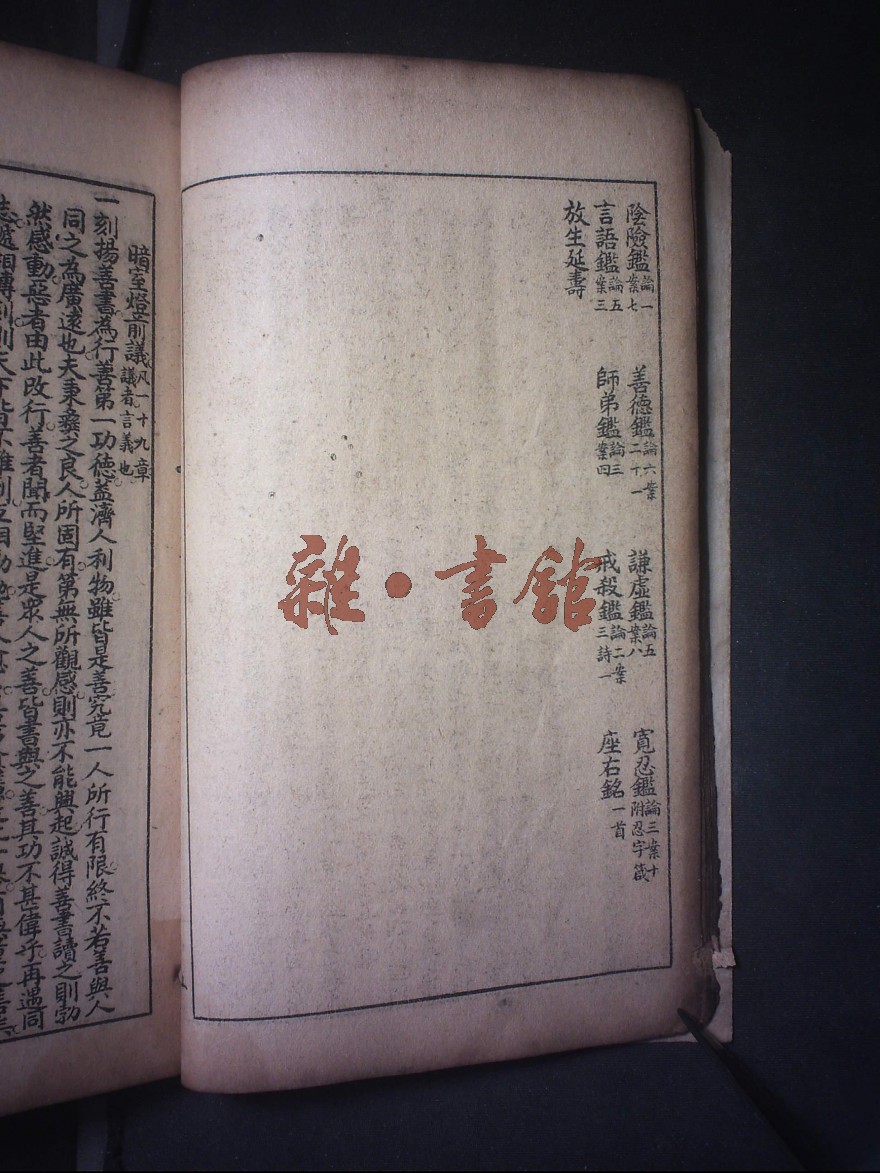 陰險鑑論一案七 善德鑑論六案二十一 謙虛鑑論五案八 寬忍鑑論三案十附忍字箴
言語鑑論五案三 師弟鑑論三案四 戒殺鑑論二案三詩一 座右銘一首
放生延壽
暗室燈前議凡一十九章議者言義也
一刻揚善書為行善第一功德蓋濟人利物雖皆是善究竟一人所行有限終不若善與人
同之為廣遠也夫秉彝之良人所固有第無所觀感則亦不能興起誠得善書讀之則勃
然感動惡者由此改行善者聞而堅進是眾人之善皆書與之善其功不甚偉乎再遇同
雜·書館